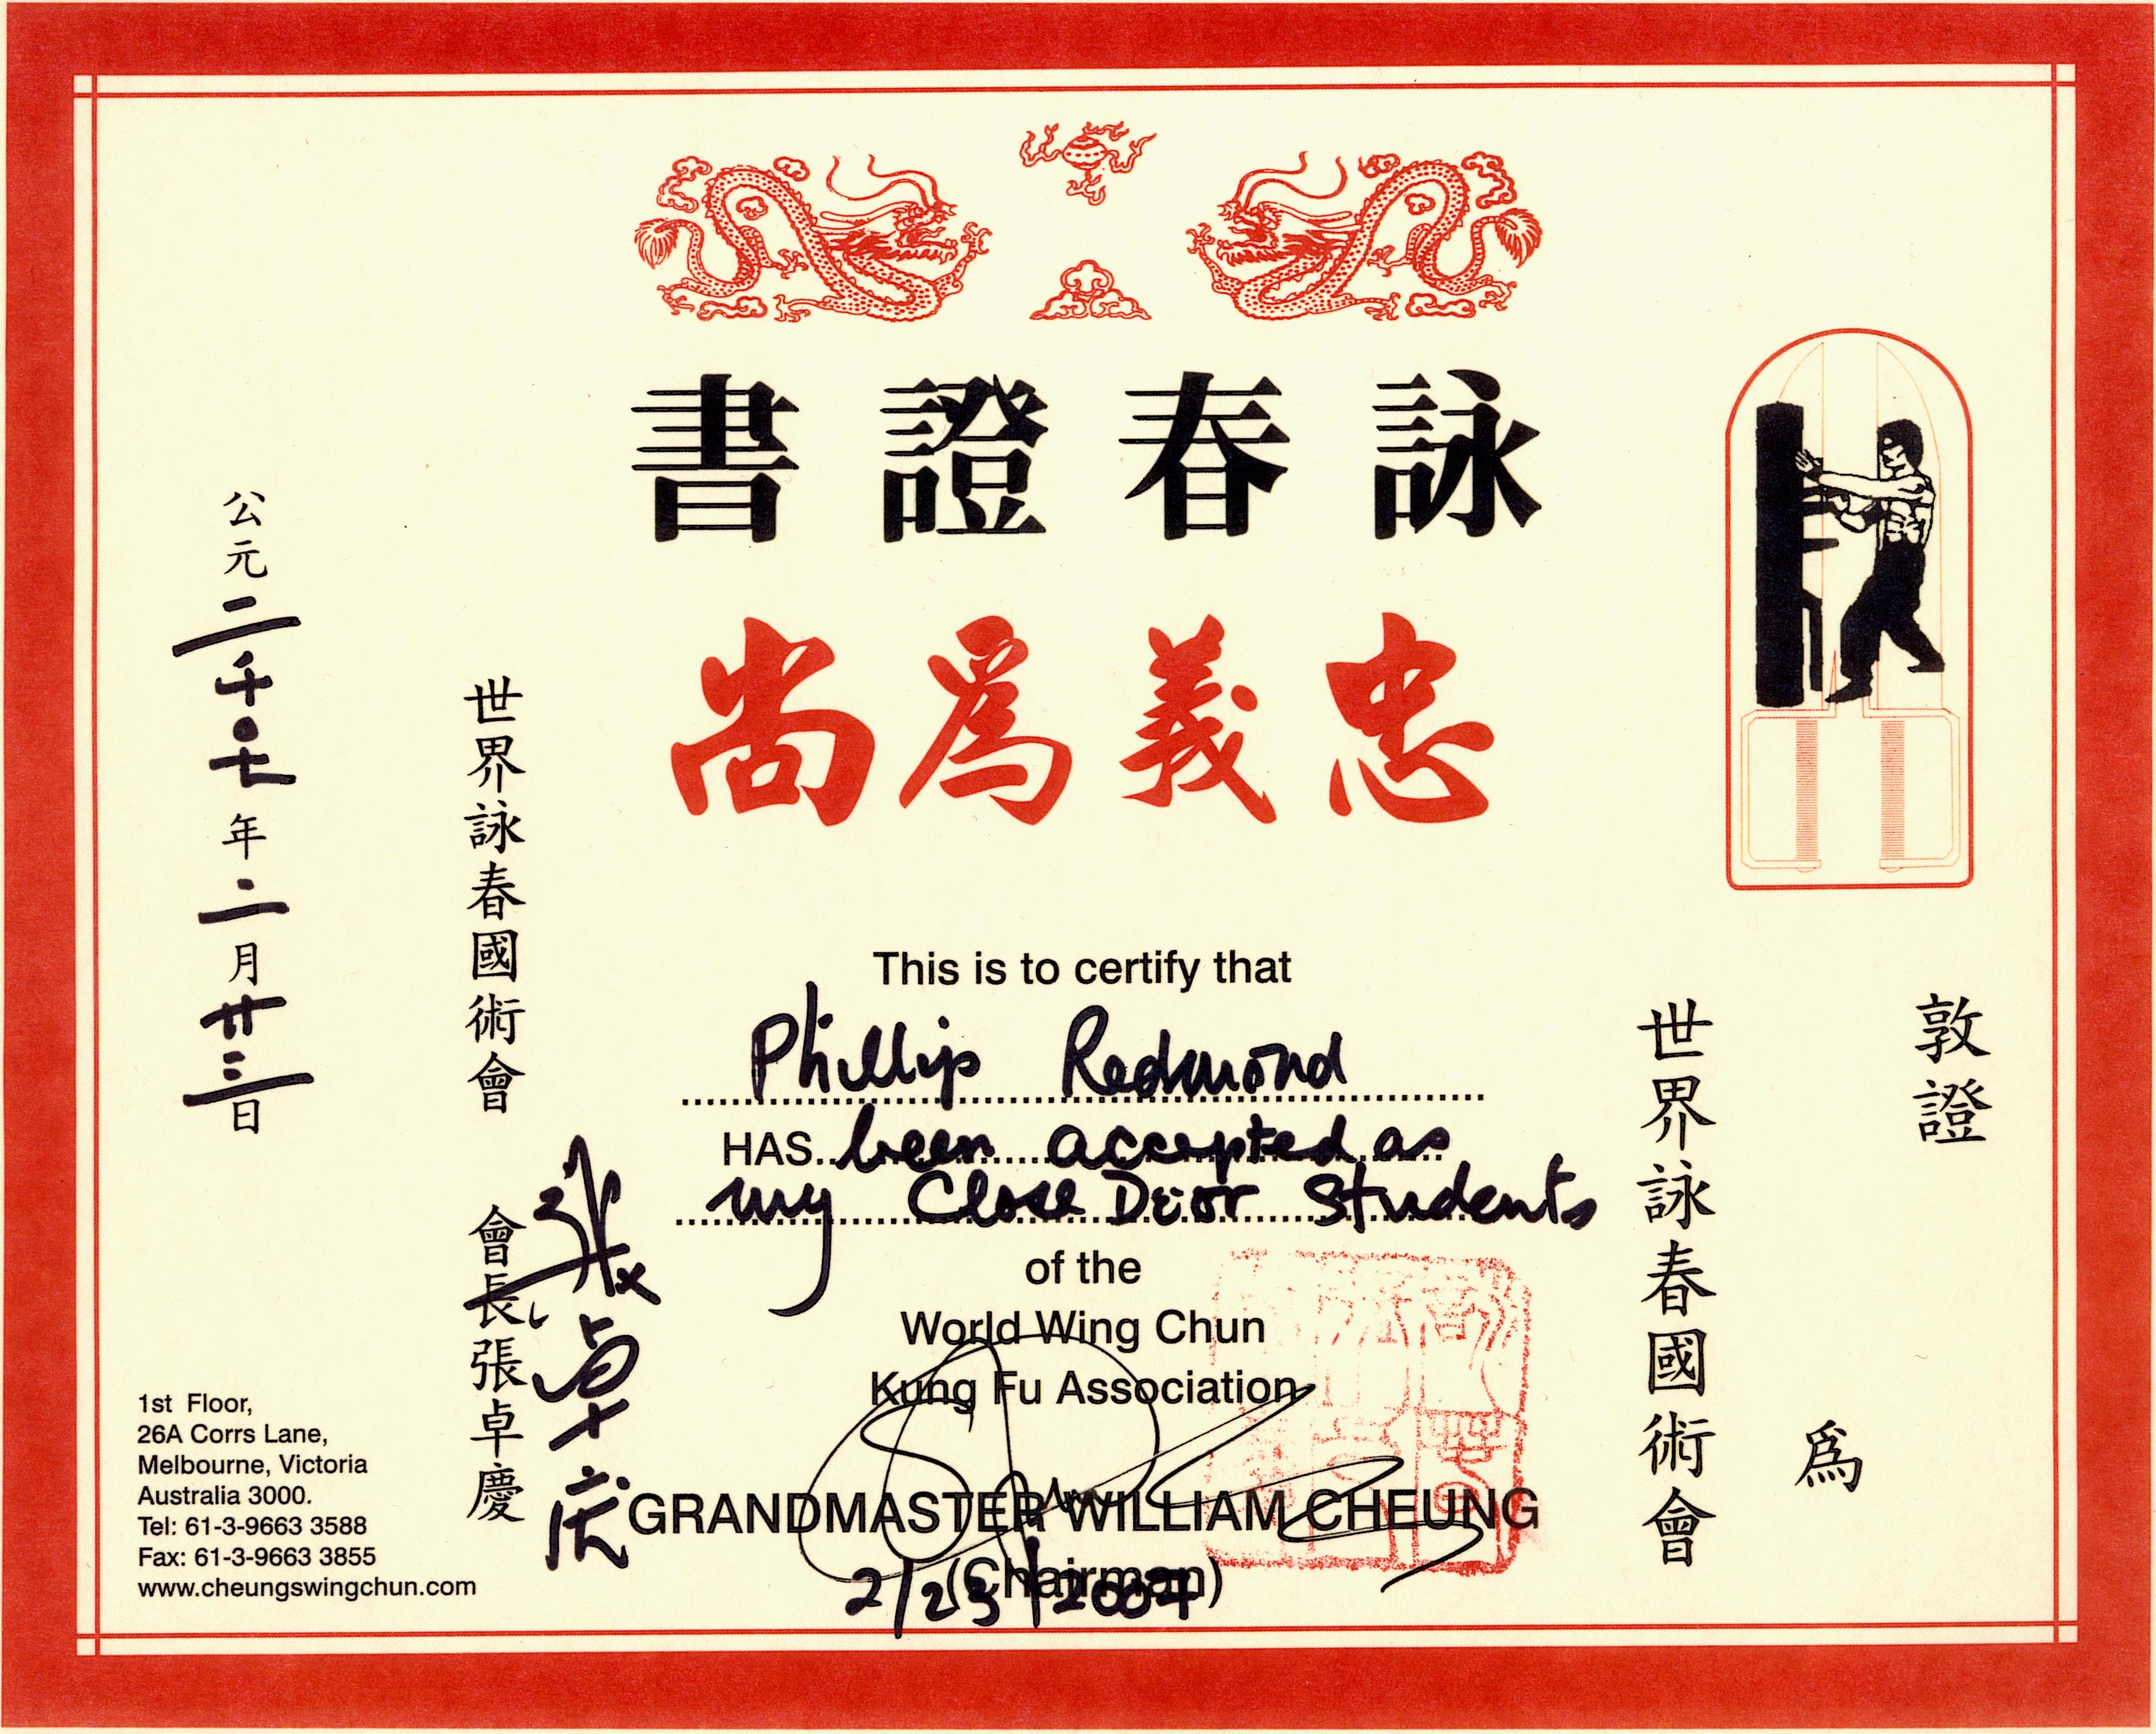 詠春證書
忠義爲尚
敦證
爲
世界詠春國術會
This is to certify that
Phillip Redmond
HAS been accepted as
my Close Door Students
of the
World Wing Chun
Kung Fu Association
GRANDMASTER WILLIAM CHEUNG
(Chairman)
2/23/2007
世界詠春國術會
會長張卓慶
张卓庆
公元二千0七年二月廿三日
1st Floor,
26A Corrs Lane,
Melbourne, Victoria
Australia 3000.
Tel: 61-3-9663 3588
Fax: 61-3-9663 3855
www.cheungswingchun.com